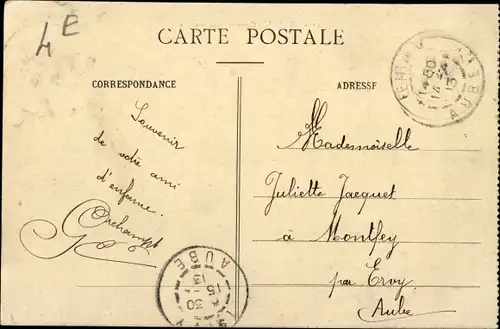 4E
CARTE POSTALE
CORRESPONDANCE
ADRESSE
Souvenir
de votre ami
d'enfance.
Mademoiselle
Juliette Jacquet
à Montfey
par Ervy
Aube
14
13
AUBE
AUBE
30
15
13